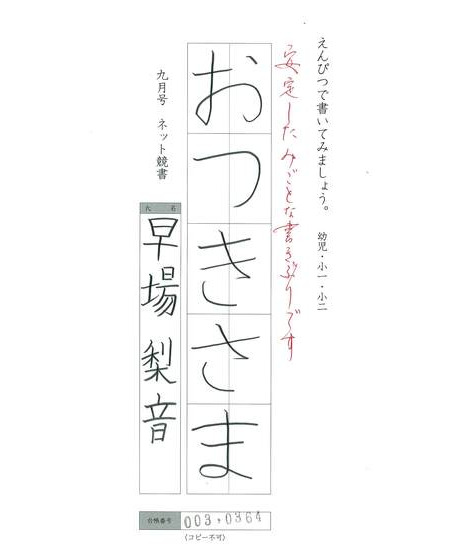 えんぴつで書いてみましょう。 幼児・小一・小二
安定したみごとな書きぶりです
おつきさま
九月号 ネット競書
氏 名
早場 梨音
台帳番号 003,0364
(コピー不可)